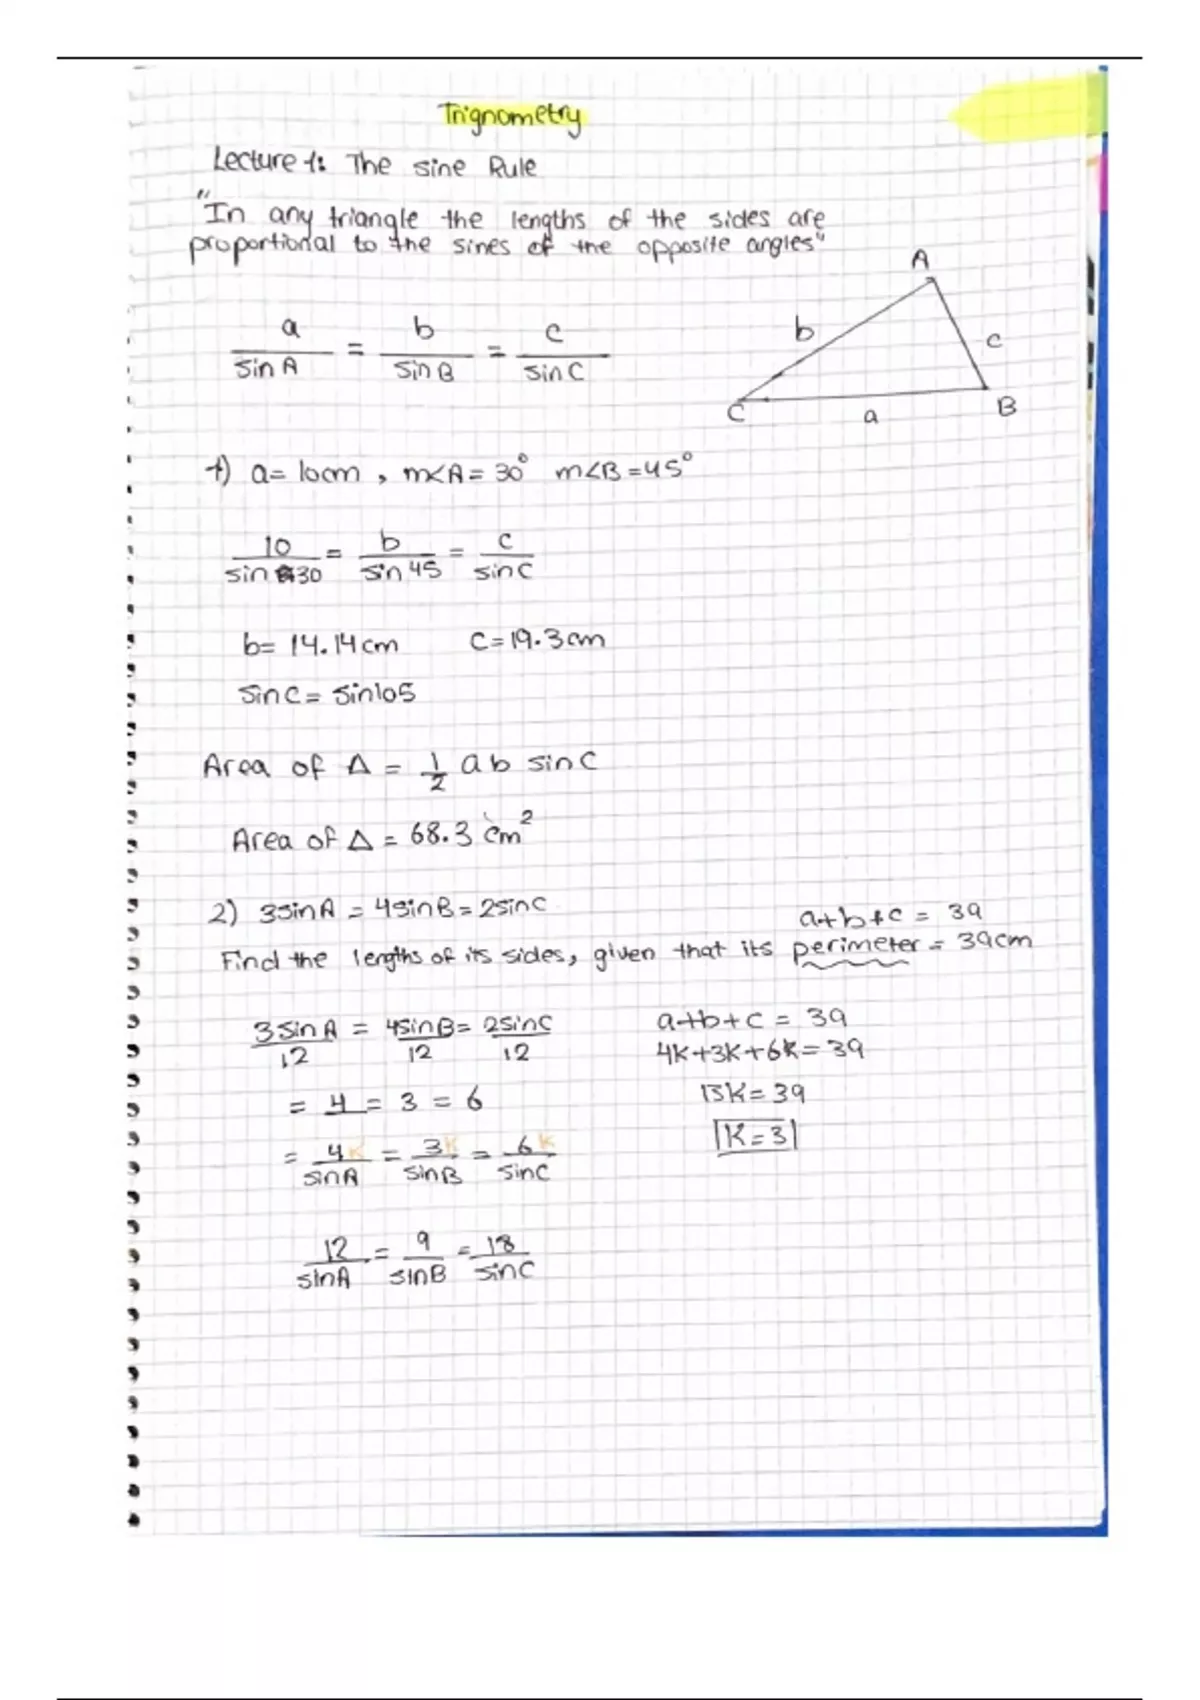 Trignometry
Lecture 1: The sine Rule
"In any triangle the lengths of the sides are
proportional to the sines of the opposite angles"
A
b
c
C
a
B
a/sin A = b/sin B = c/sin C
1) a = 10cm , m<A = 30° m<B = 45°
10/sin 30 = b/sin 45 = c/sin C
b = 14.14cm C = 19.3cm
sin C = sin105
Area of Δ = 1/2 a b sin C
Area of Δ = 68.3 cm²
2) 3sinA = 4sinB = 2sinC
a+b+c = 39
Find the lengths of its sides, given that its perimeter = 39cm
3sinA/12 = 4sinB/12 = 2sinC/12
= 4 = 3 = 6
= 4K/sinA = 3K/sinB = 6K/sinC
12/sinA = 9/sinB = 18/sinC
a+b+c = 39
4K+3K+6K = 39
13K = 39
K = 3